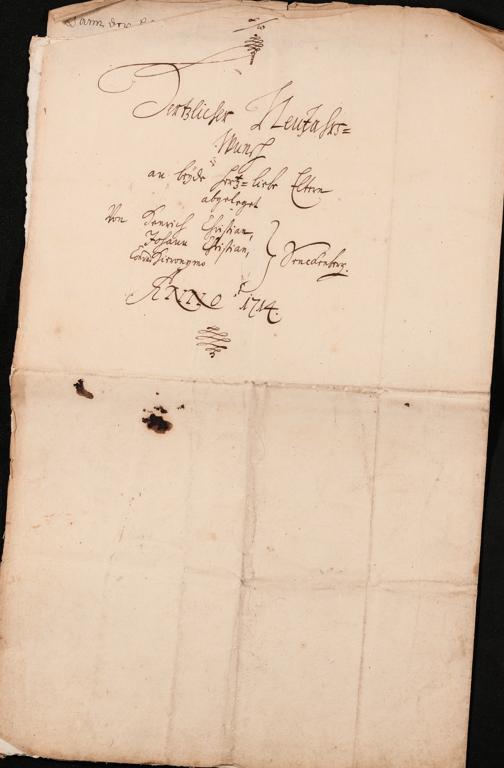 Hertzlicher Neujahrs=
Wunsch
an beyde hertz=liebe Eltern
abgeleget
Von Henrich Christian,
Johann Christian,
Conrad Hieronymo
Senckenberg.
ANNO 1714.